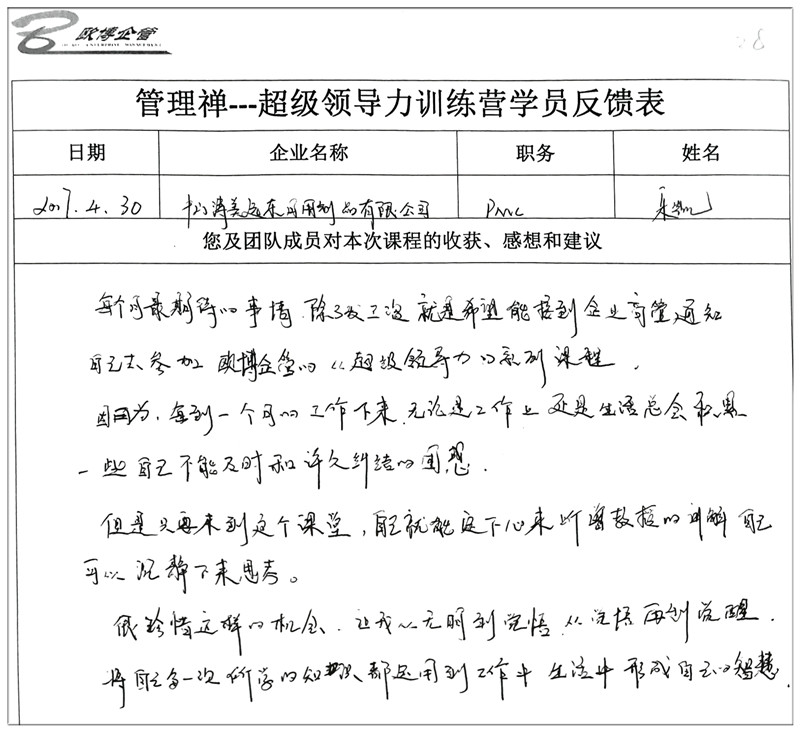 欧博企管
管理禅---超级领导力训练营学员反馈表
日期 企业名称 职务 姓名
2017.4.30 有限公司 PMC
您及团队成员对本次课程的收获、感想和建议
每个月最期待的事情 除了发工资 就是希望能接到企业高管通知
自己去参加 欧博企管的 超级领导力的系列课程.
因为, 每到一个月的工作下来, 无论是工作上 还是生活总会积累
一些自己不能及时和许久纠结的困惑.
但是只要来到这个课堂, 自己就能定下心来听曾教授的讲解 自己
可以沉静下来思考。
很珍惜这样的机会. 让我从无明到觉悟, 从觉悟再到觉醒.
将自己每一次所学的知识都运用到工作中 生活中 形成自己的智慧.